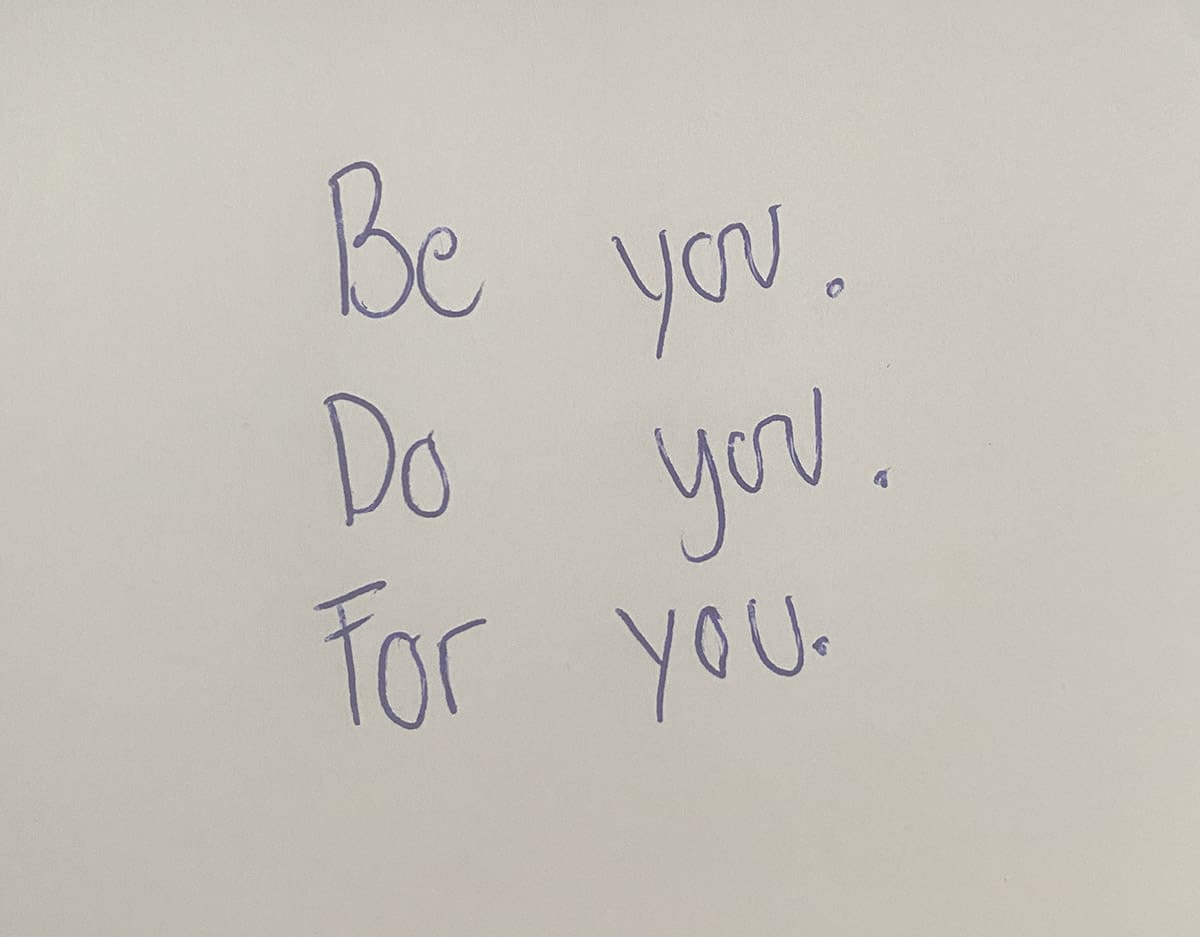 Be you.
Do you.
For you.